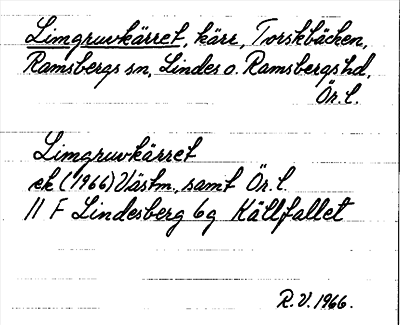 Limgruvkärret, kärr, Torskbäcken,
Ramsbergs sn, Lindes o. Ramsbergs hd,
Ör. l.
Limgruvkärret
ek (1966) Västm. samt Ör. l.
11 F Lindesberg 6g Källfallet
R.V. 1966.